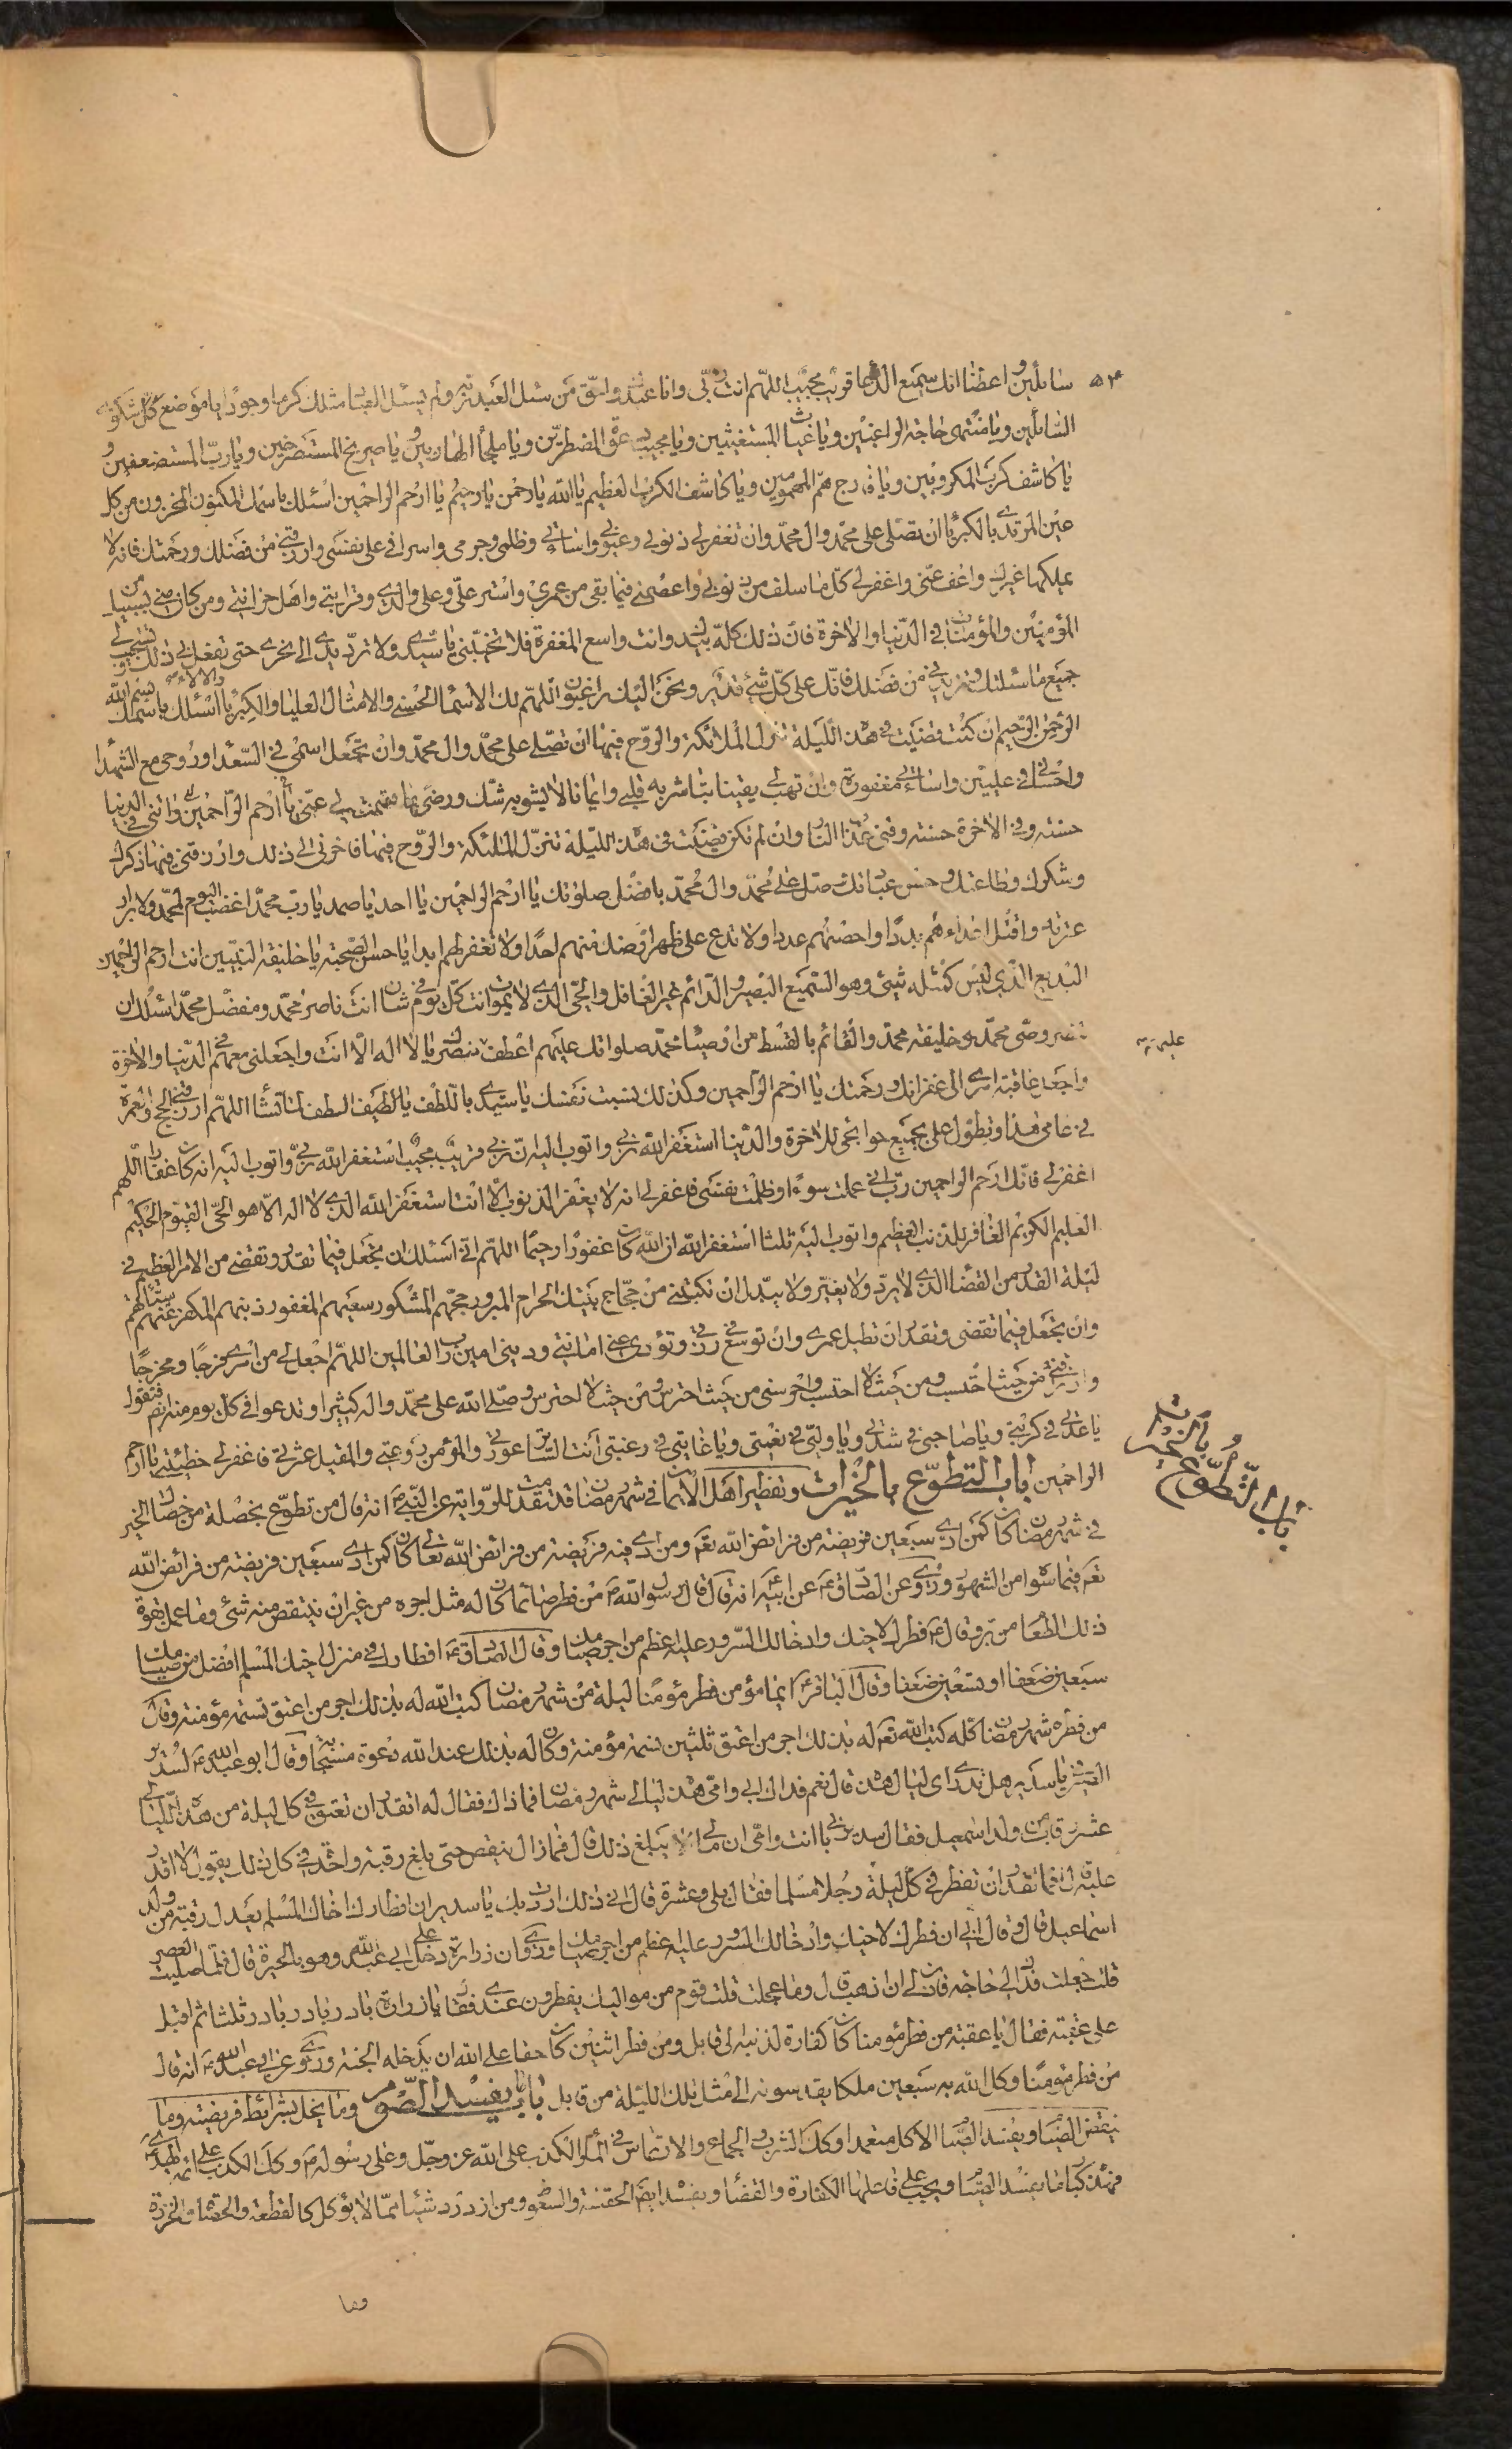 ۵۴
سائلين واعطنا انك سميع الدعا قريب مجيب اللهم انت ربّى وانا عبدك واحق من سئل العبد ربه ولم يسئل العباد مثلك كرما وجودا يا موضع كل شكوى
السّائلين ويا منتهى حاجة الراغبين ويا غياث المستغيثين ويا مجيب دعوة المضطرين ويا ملجأ الهاربين ويا صريخ المستصرخين ويا ربّ المستضعفين و
يا كاشف كرب المكروبين ويا فارج همّ المهمومين ويا كاشف الكرب العظيم يا الله يا رحمن يا رحيم يا ارحم الراحمين اسئلك باسمك المكنون المخزون من كل
عين المرتدى بالكبرياء ان تصلى على محمد وال محمد وان تغفر لى ذنوبى وعيوبى واساءتى وظلمى وجرمى واسرافى على نفسى وارزقنى من فضلك ورحمتك فانه لا
يملكها غيرك واعف عنى واغفر لى كل ما سلف من ذنوبى واعصمنى فيما بقى من عمرى واستر علىّ وعلى والدى وقرابتى واهل حزانتى ومن كان منى بسبيل من
المؤمنين والمؤمنات فى الدنيا والاخرة فان ذلك كله بيدك وانت واسع المغفرة فلا تخيّبنى يا سيدى ولا تردّ يدى الى نحرى حتى تفعل بى ذلك وتستجيب لى
جميع ما سئلتك وتزيدنى من فضلك فانّك على كل شئ قدير ونحن اليك راغبون اللهم لك الاسماء الحسنى والامثال العليا والكبرياء والالاء اسئلك باسمك بسم الله
الرحمن الرحيم ان كنت قضيت فى هذه الليلة تنزل الملائكة والروح فيها ان تصلى على محمد وال محمد وان تجعل اسمى فى السّعداء وروحى مع الشهداء
واحسانى فى عليين واساءتى مغفورة وان تهب لى يقينا تباشر به قلبى وايمانا لا يشوبه شك ورضى بما قسمت لى عنى يا ارحم الراحمين واتنى فى الدنيا
حسنة وفى الاخرة حسنة وقنى عذاب النار وان لم تكن قضيت فى هذه الليلة تنزّل الملئكة والرّوح فيها فاخرنى الى ذلك وارزقنى فيها ذكرك
وشكرك وطاعتك وحسن عبادتك صل على محمد وال محمد بافضل صلوتك يا ارحم الراحمين يا احد يا صمد يا رب محمد اغضب اليوم لمحمد ولابرار
عترته واقتل اعداءهم بددا واحصهم عددا ولا تدع على ظهر الارض منهم احدا ولا تغفر لهم ابدا يا حسن الصّحبة يا خليفة النبيين انت ارحم الراحمين
البديع الذى ليس كمثله شئ وهو السّميع البصير والدائم غير الغافل والحى الذى لا يموت انت كل يوم فى شان انت ناصر محمد ومفضل محمد اسئلك ان
تنصر وصى محمد وخليفة محمد والقائم بالقسط من اوصياء محمد صلواتك عليهم اعطف عليهم نصرك يا لا اله الا انت واجعلنى معهم فى الدنيا والاخرة
واجعل عاقبة امرى الى غفرانك ورحمتك يا ارحم الراحمين وكذلك نسبت نفسك يا سيدى باللطف يا لطيف الطف لما تشاء اللهم ارزقنى الحج والعمرة
فى عامى هذا وتطول على بجميع حوائجى للاخرة والدنيا استغفر الله ربى واتوب اليه ان ربى قريب مجيب استغفر الله ربى واتوب اليه انه كان غفارا اللهم
اغفر لى فانّك ارحم الراحمين رب انى عملت سوءا وظلمت نفسى فاغفر لى انه لا يغفر الذنوب الا انت استغفر الله الذى لا اله الا هو الحى القيوم الحكيم
العليم الكريم الغافر للذنب العظيم واتوب اليه ثلثا استغفر الله ان الله كان غفورا رحيما اللهم انى اسئلك ان تجعل فيما تقدر وتقضى من الامر العظيم فى
ليلة القدر من القضاء الذى لا يردّ ولا يغيّر ولا يبدّل ان تكتبنى من حجاج بيتك الحرام المبرور حجهم المشكور سعيهم المغفور ذنبهم المكفر عنهم سيئاتهم
وان تجعل فيما تقضى وتقدر ان تطيل عمرى وان توسع فى رزقى وتؤدى عنى امانتى ودينى امين رب العالمين اللهم اجعل لى من امرى فرجا ومخرجا
وارزقنى من حيث احتسب ومن حيث لا احتسب واحرسنى من حيث احترس ومن حيث لا احترس وصلى الله على محمد واله كثيرا وتدعوا فى كل يوم منه فتقول
يا عدتى فى كربتى ويا صاحبى فى شدتى ويا وليّى فى نعمتى ويا غايتى فى رغبتى انت الساتر عورتى والمؤمن روعتى والمقيل عثرتى فاغفر لى خطيئتى يا ارحم
الراحمين باب التطوّع بالخيرات وتفطير اهل الايمان فى شهر رمضان قد تقدمت الرواية عن النبى انه قال من تطوّع بخصلة من خصال الخير
فى شهر رمضان كان كمن ادى سبعين فريضة من فرائض الله تع ومن ادى فيه فريضة من فرائض الله تعالى كان كمن ادى سبعين فريضة من فرائض الله
تع فيما سواه من الشهور وروى عن الصّادق ع عن ابيه انه قال قال رسول الله من فطر صائما كان له مثل اجره من غير ان ينتقص منه شئ وما عمل بقوة
ذلك الطعام من بر وقال فطرك لاخيك وادخالك السّرور عليه اعظم من اجر صيامك وقال الصادق ع افطارك فى منزل اخيك المسلم افضل من صيامك
سبعين ضعفا او تسعين ضعفا وقال الباقر ع ايما مؤمن فطر مؤمنا ليلة من شهر رمضان كتب الله له بذلك اجر من اعتق نسمة مؤمنة وقال
من فطره شهر رمضان كله كتب الله تع له بذلك اجر من اعتق ثلثين نسمة مؤمنة وكان له بذلك عند الله دعوة مستجابة وقال ابو عبد الله ع لسدير
الصيرفى يا سدير هل تدرى اى ليال هذه قال نعم فداك ابى وامّى هذه ليالى شهر رمضان فما ذاك فقال له اتقدر ان تعتق فى كل ليلة من هذه الليالى
عشر رقاب من ولد اسمعيل فقال سدير بابى انت وامّى ان مالى لا يبلغ ذلك قال فما زال ينقص حتى بلغ رقبة واحدة فى كل ذلك يقول لا اقدر
عليه قال فما تقدر ان تفطر فى كل ليلة رجلا مسلما فقال بلى وعشرة قال انى ذلك اردت بك يا سدير ان افطارك اخاك المسلم يعدل رقبة من ولد
اسماعيل قال وقال ابى ان فطرك لاخيك وادخالك السرور عليه اعظم من اجر صيامك وروى ان زرارة دخل على ابى عبد الله وهو بالحيرة قال فلما صليت العصر
قلت جعلت فداك لى حاجة فان لى ان اذهب قال وما عجلت قلت قوم من مواليك يفطرون عندى فقال يا زرارة بادر بادر بادر ثلثا ثم اقبل
على عقبة فقال يا عقبة من فطر مؤمنا كان كفارة لذنبه الى قابل ومن فطر اثنين كان حقا على الله ان يدخله الجنة وروى عن ابى عبد الله ع انه قال
من فطر مؤمنا وكل الله به سبعين ملكا يقدسونه الى مثل تلك الليلة من قابل باب ما يفسد الصّوم وما يخل بشرائط فريضته وما
ينقض الصّيام ويفسد الصّيام الاكل متعمدا وكذلك الشرب والجماع والارتماس فى الماء والكذب على الله عز وجلّ وعلى رسوله وكذلك الكذب على ائمة الهدى ع
فهذه كبائر ما يفسد الصّيام ويجب على فاعلها الكفارة والقضاء ويفسد ايضا الحقنة والسعوط ومن ازدرد شيئا مما لا يؤكل كالفطعة والحصاة والخرزة
عليهم
باب التّطوّع بالخيرات
وما